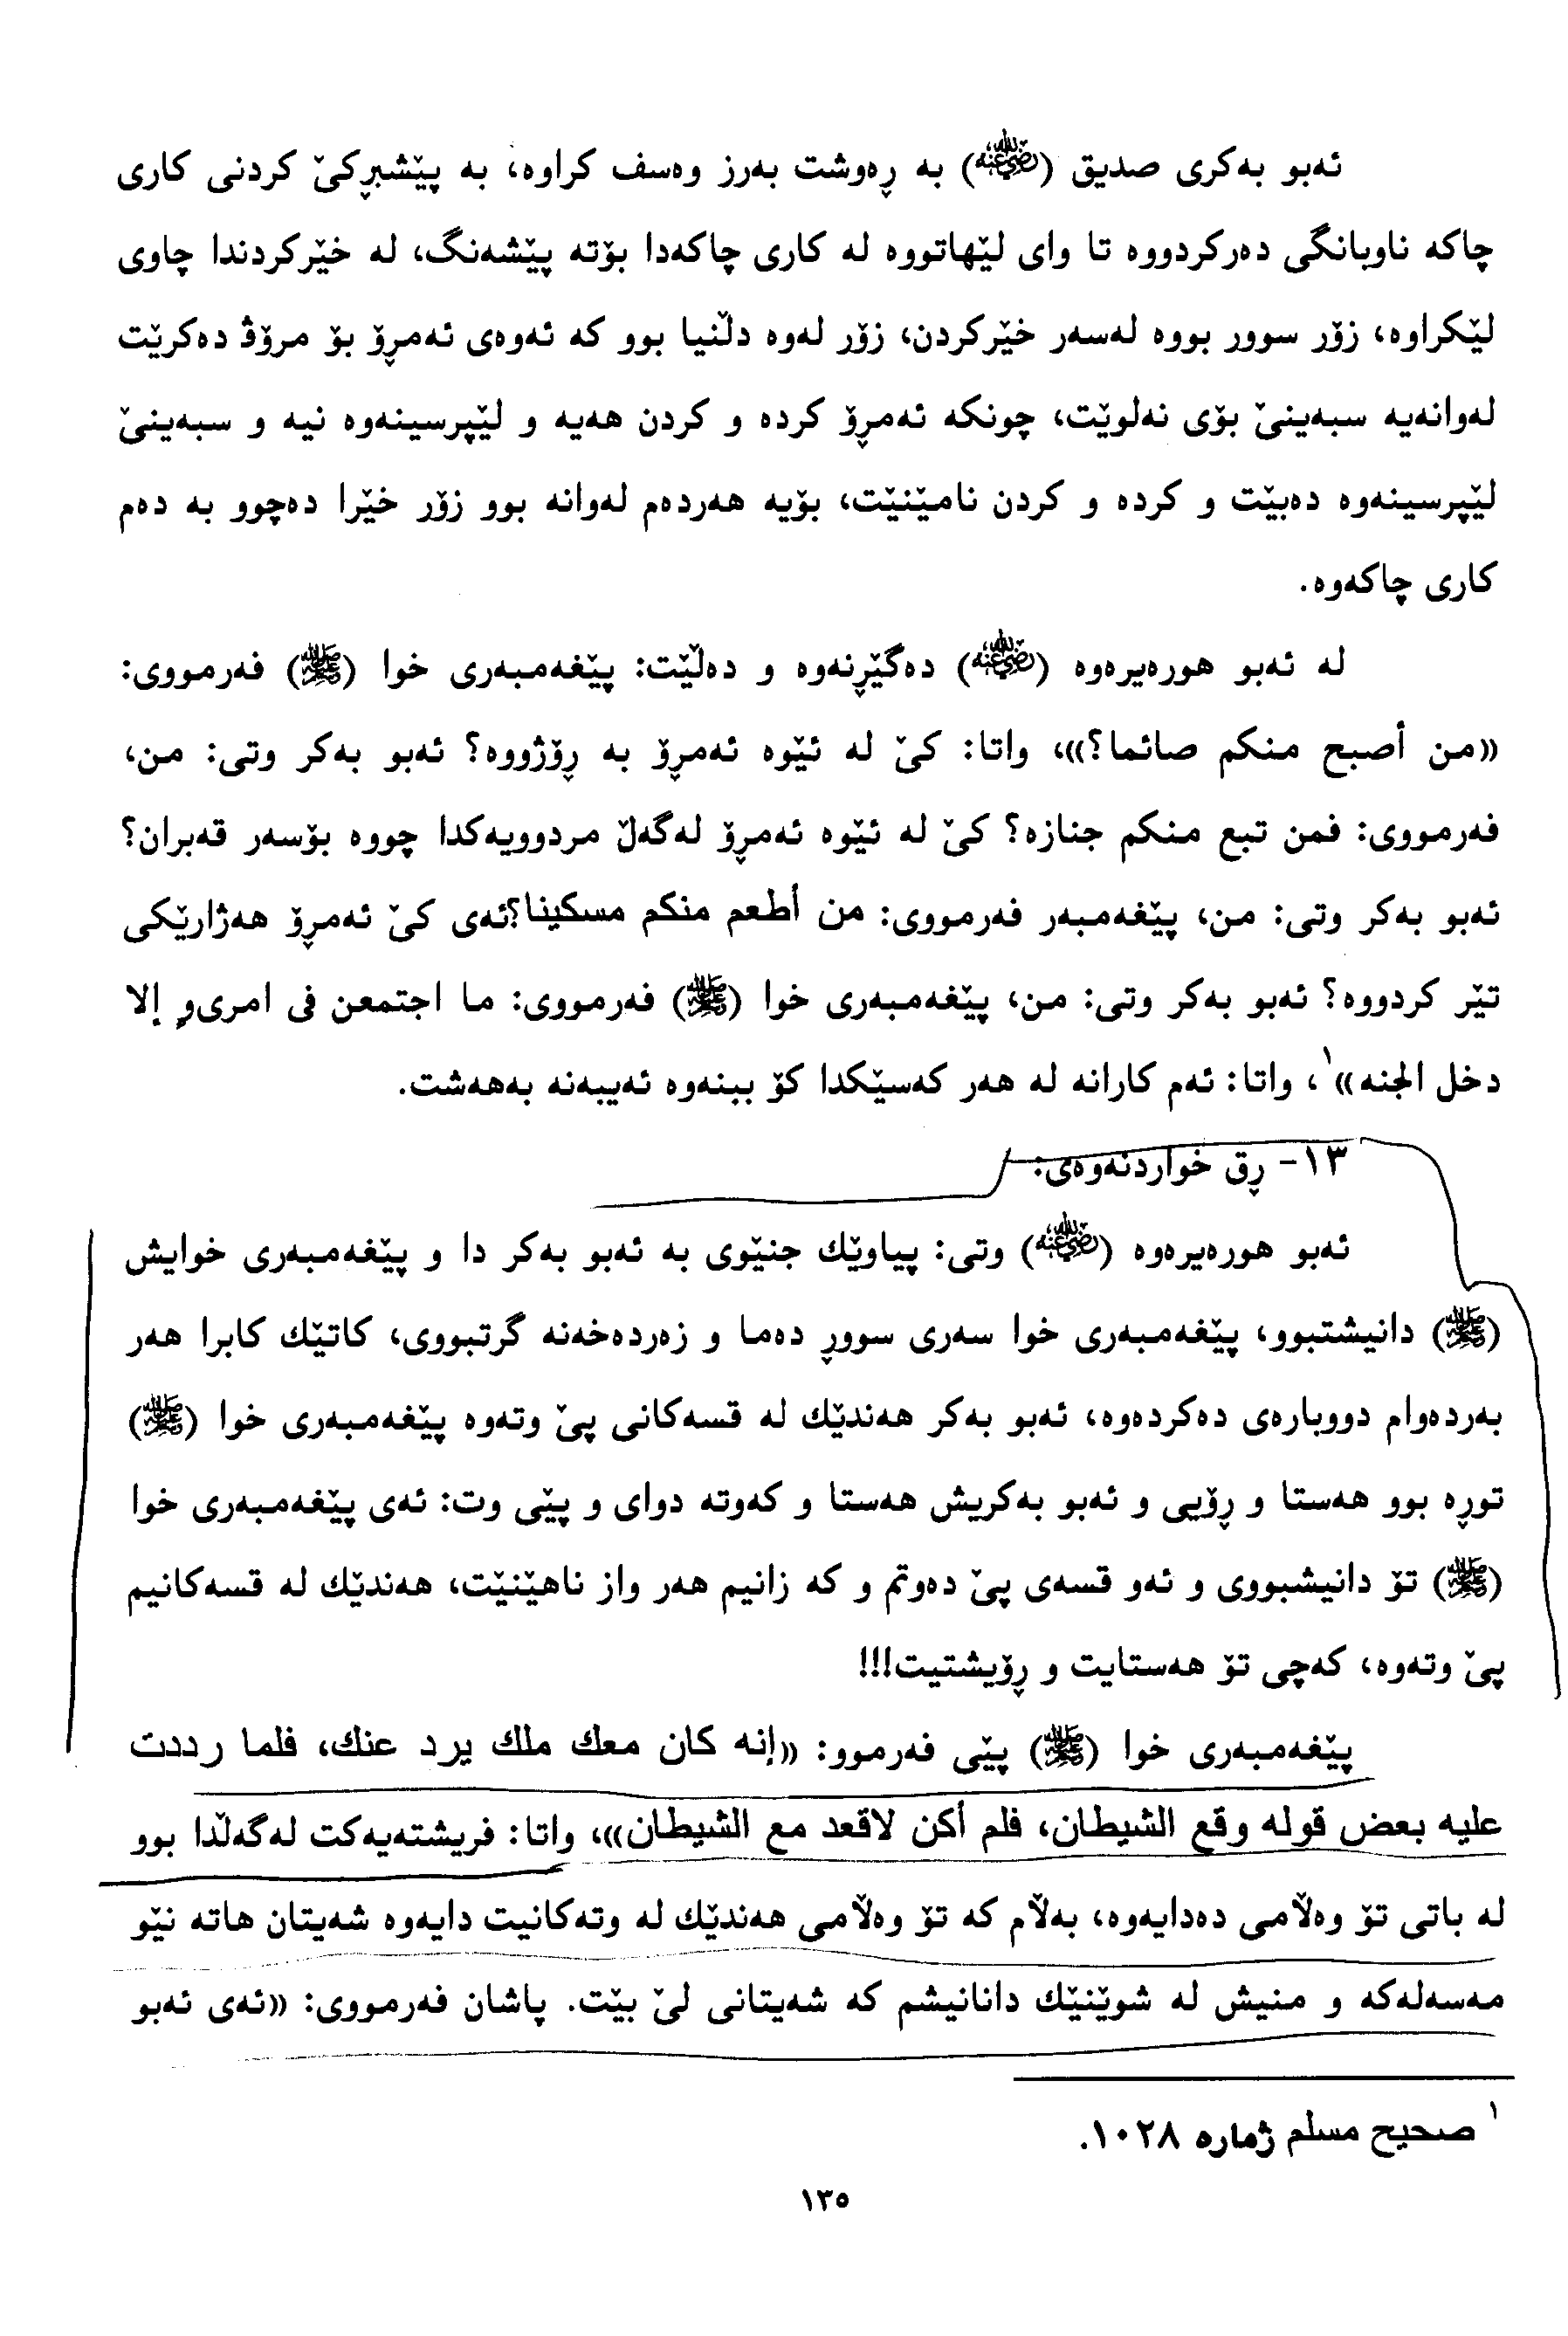 ئەبو بەکری صدیق (رضي الله عنه) بە ڕەوشت بەرز وەسف کراوە، بە پێشبڕکێ کردنی کاری
چاکە ناوبانگی دەرکردووە تا وای لێهاتووە لە کاری چاکەدا بۆتە پێشەنگ، لە خێرکردندا چاوی
لێکراوە، زۆر سوور بووە لەسەر خێرکردن، زۆر لەوە دڵنیا بوو کە ئەوەی ئەمڕۆ بۆ مرۆڤ دەکرێت
لەوانەیە سبەینێ بۆی نەلوێت، چونکە ئەمڕۆ کردە و کردن هەیە و لێپرسینەوە نیە و سبەینێ
لێپرسینەوە دەبێت و کردە و کردن نامێنێت، بۆیە هەردەم لەوانە بوو زۆر خێرا دەچوو بە دەم
کاری چاکەوە.
لە ئەبو هورەیرەوە (رضي الله عنه) دەگێڕنەوە و دەڵێت: پێغەمبەری خوا (ﷺ) فەرمووی:
«من أصبح منكم صائما؟»، واتا: کێ لە ئێوە ئەمڕۆ بە ڕۆژووە؟ ئەبو بەکر وتی: من،
فەرمووی: فمن تبع منكم جنازە؟ کێ لە ئێوە ئەمڕۆ لەگەڵ مردوویەکدا چووە بۆسەر قەبران؟
ئەبو بەکر وتی: من، پێغەمبەر فەرمووی: من أطعم منكم مسكينا؟ئەی کێ ئەمڕۆ هەژارێکی
تێر کردووە؟ ئەبو بەکر وتی: من، پێغەمبەری خوا (ﷺ) فەرمووی: ما اجتمعن في امرىوٍ إلا
دخل الجنە»١، واتا: ئەم کارانە لە هەر کەسێکدا کۆ ببنەوە ئەیبەنە بەهەشت.
١٣- ڕق خواردنەوەی:
ئەبو هورەیرەوە (رضي الله عنه) وتی: پیاوێك جنێوی بە ئەبو بەکر دا و پێغەمبەری خوایش
(ﷺ) دانیشتبوو، پێغەمبەری خوا سەری سووڕ دەما و زەردەخەنە گرتبووی، کاتێك کابرا هەر
بەردەوام دووبارەی دەکردەوە، ئەبو بەکر هەندێك لە قسەکانی پێ وتەوە پێغەمبەری خوا (ﷺ)
توڕە بوو هەستا و ڕۆیی و ئەبو بەکریش هەستا و کەوتە دوای و پێی وت: ئەی پێغەمبەری خوا
(ﷺ) تۆ دانیشبووی و ئەو قسەی پێ دەوتم و کە زانیم هەر واز ناهێنێت، هەندێك لە قسەکانیم
پێ وتەوە، کەچی تۆ هەستایت و ڕۆیشتیت!!!
پێغەمبەری خوا (ﷺ) پێی فەرموو: «إنه كان معك ملك يرد عنك، فلما رددت
عليه بعض قوله وقع الشيطان، فلم أكن لاقعد مع الشيطان»، واتا: فریشتەیەکت لەگەڵدا بوو
لە باتی تۆ وەڵامی دەدایەوە، بەڵام کە تۆ وەڵامی هەندێك لە وتەکانیت دایەوە شەیتان هاتە نێو
مەسەلەکە و منیش لە شوێنێك دانانیشم کە شەیتانی لێ بێت. پاشان فەرمووی: «ئەی ئەبو
١ صحیح مسلم ژمارە ١٠٢٨.
١٣٥